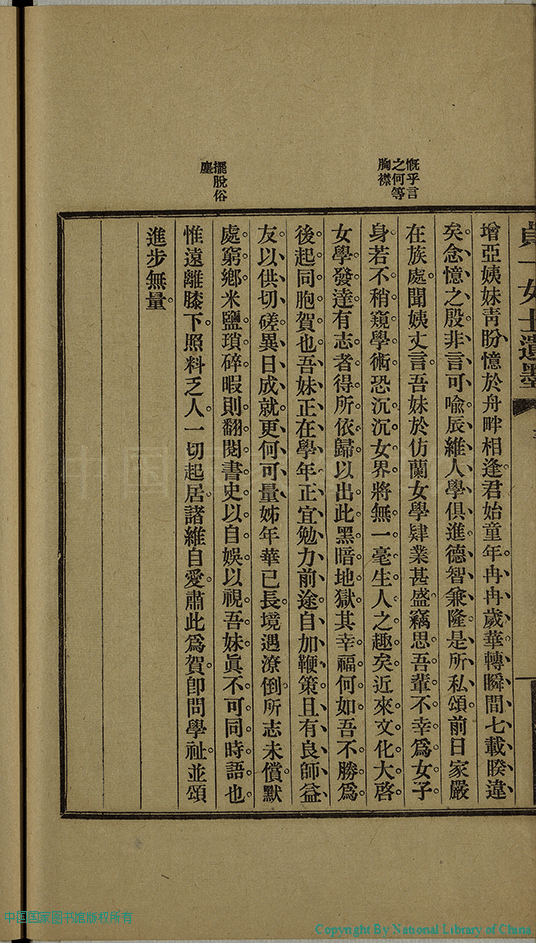 貞一女士遺墨
增亞姨妹靑盼憶於舟畔相逢君始童年冉冉歲華轉瞬間七載睽違
矣念憶之殷非言可喩辰維人學俱進德智兼隆是所私頌前日家嚴
在族處聞姨丈言吾妹於仿蘭女學肄業甚盛竊思吾輩不幸爲女子
身若不稍窺學術恐沉沉女界將無一毫生人之趣矣近來文化大啓
女學發達有志者得所依歸以出此黑暗地獄其幸福何如吾不勝爲
後起同胞賀也吾妹正在學年正宜勉力前途自加鞭策且有良師益
友以供切磋異日成就更何可量姊年華已長境遇潦倒所志未償默
處窮鄉米鹽瑣碎暇則翻閱書史以自娛以視吾妹眞不可同時語也
惟遠離膝下照料乏人一切起居諸維自愛肅此爲賀卽問學祉並頌
進步無量
慨乎言
之何等
胸襟
擺脫俗
塵
中国国家图书馆版权所有
Copyright By National Library of China